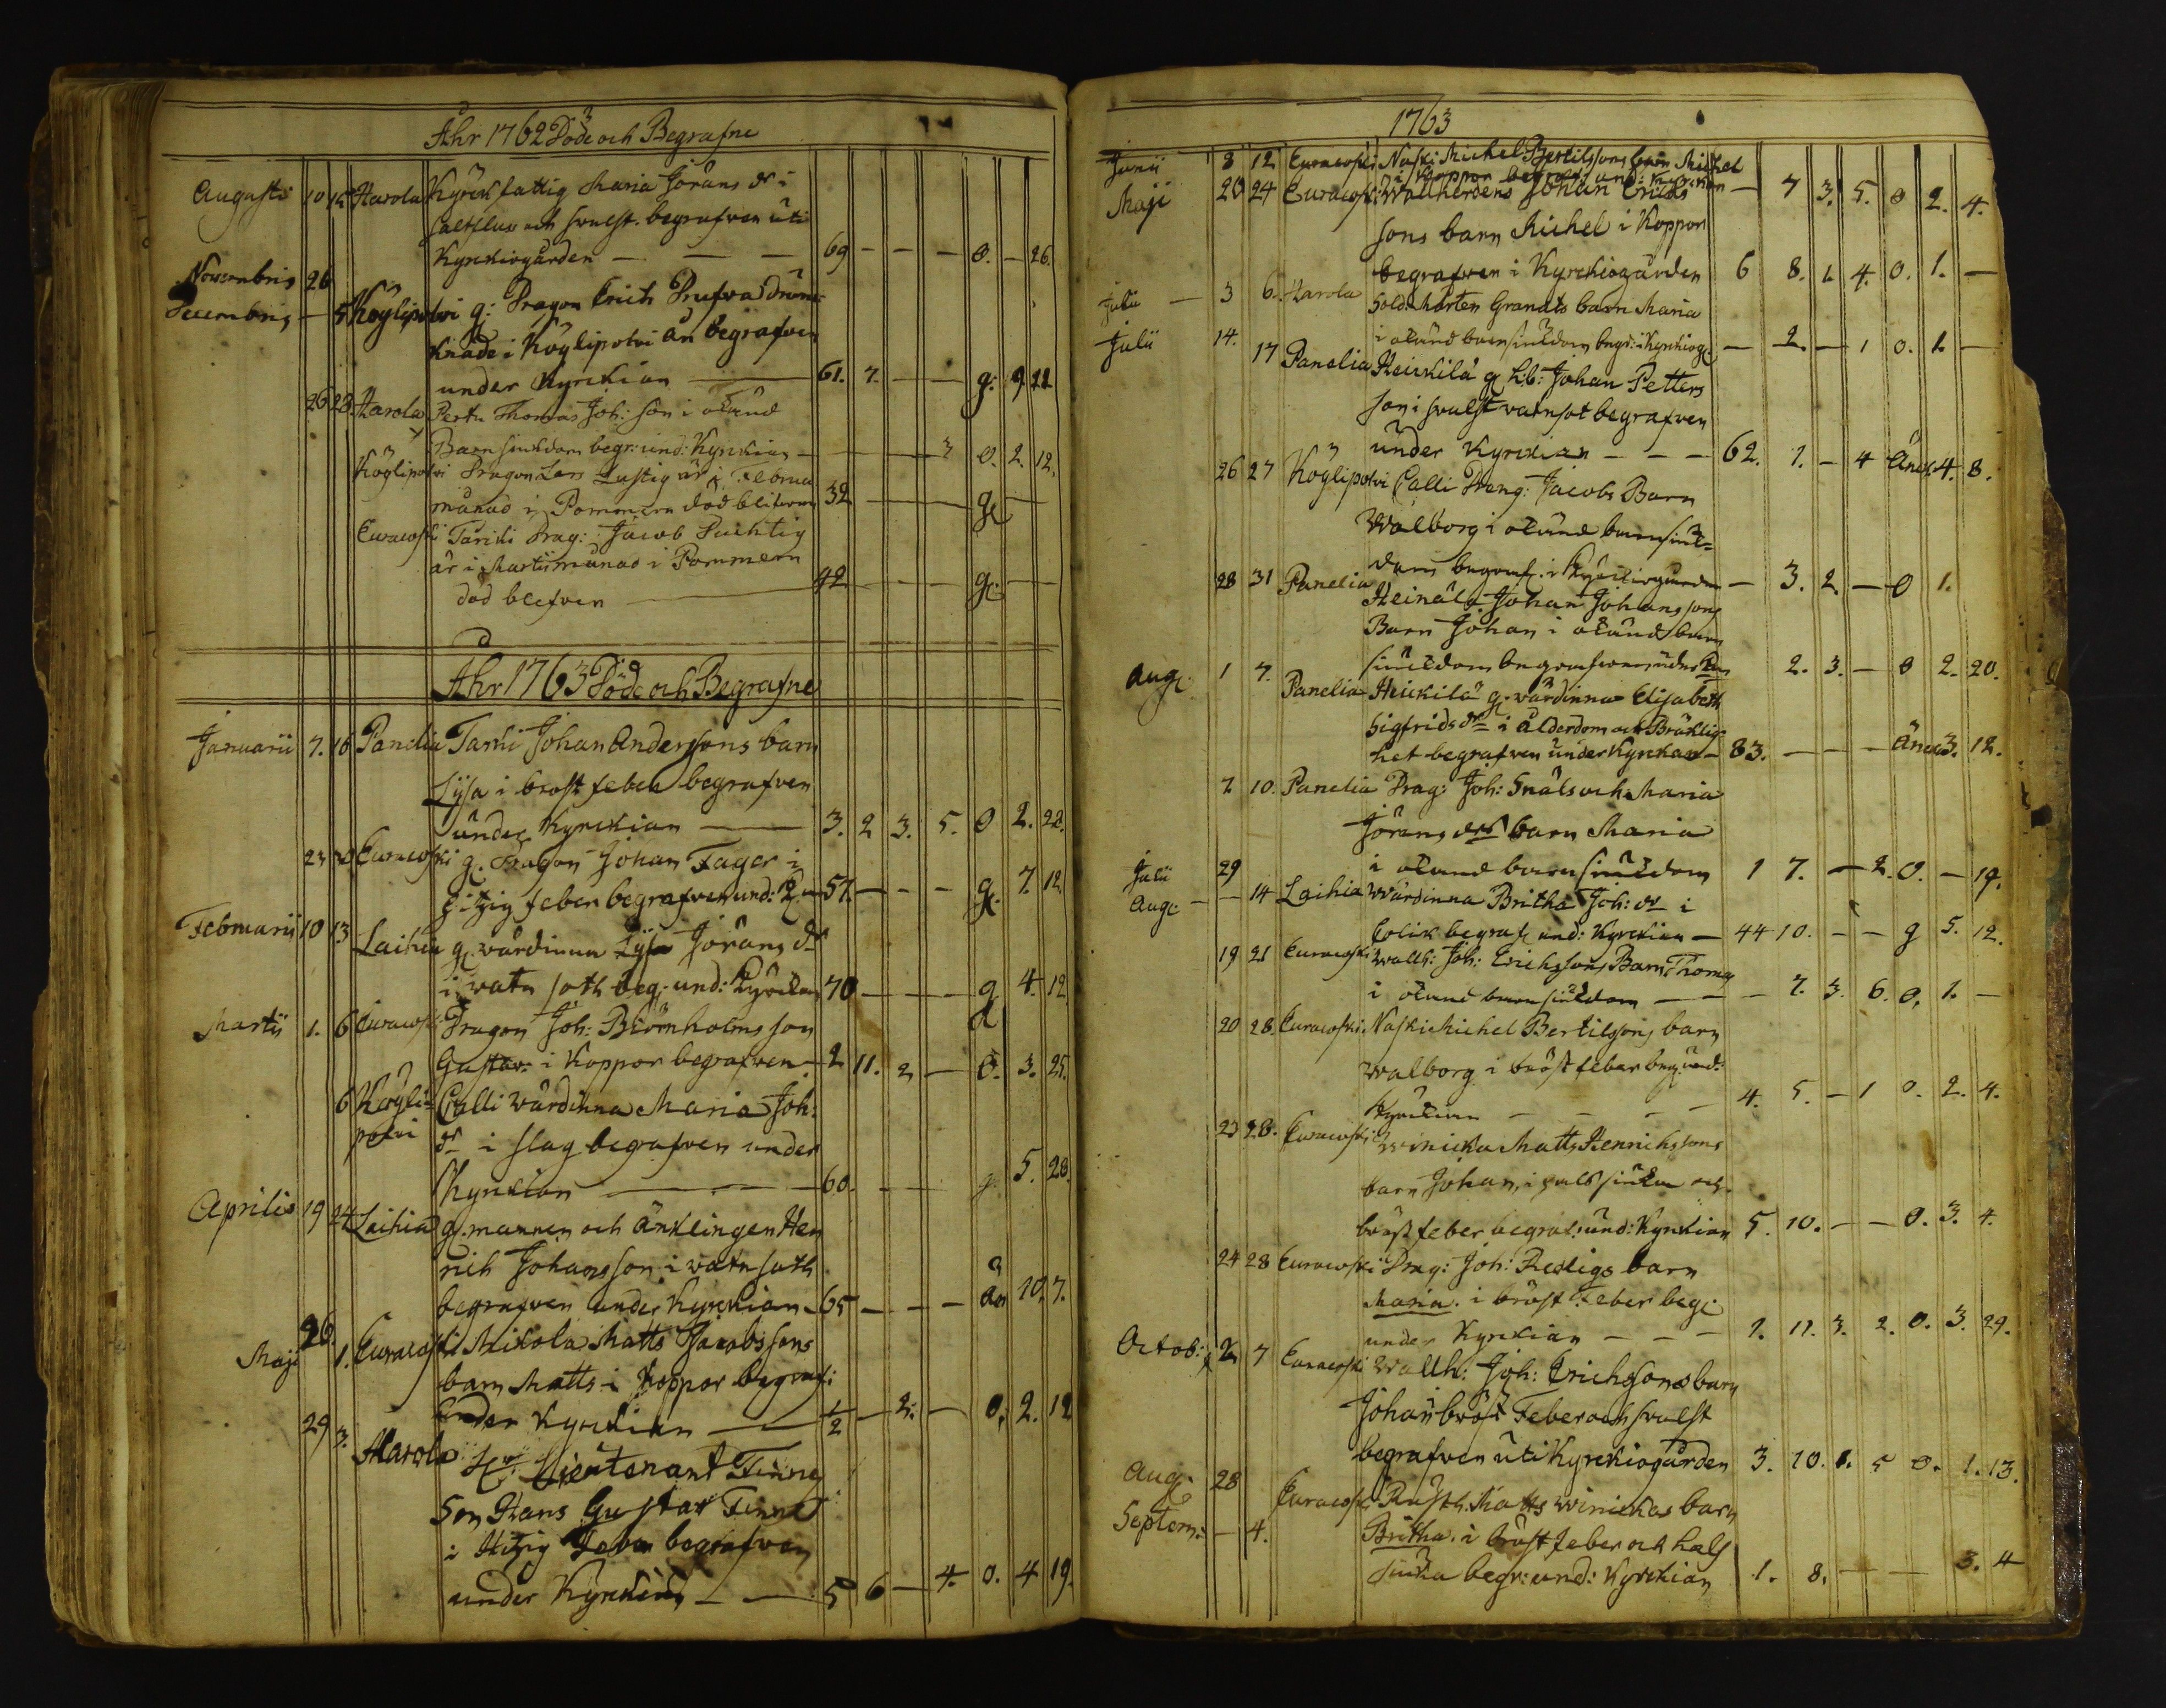 Åhr 1762 Döde och Begrafne
Augusti 10 15 Harola Kyrck fattig Maria Jörans dr i
saltflus och swulst. begrafven uti
Kyrckiogården — — — 69 — — — 0. — 26.
Novembris 26
Decembris — 5 Köylipolvi g: Dragon Erich Prufva drun-
knade i Köylipolvi än begrafven
under Kyrckian — 61. 7. — — g. 9 22
26 28. Harola Pertu Thomas Joh: son i okänd
Barnsiukdom begr: und: Kyrckian — — — 3 0. 2. 12.
Köylipolvi Dragon Lars Lustig är i Februa
månad i Pommern död blifven 32 — — — g. —
Euracoski Tariki Drag: Jacob Suchtig
är i Martii månad i Pommern
död blefven — 42 — — — g. —
Åhr 1763 Döde och Begrafne
Januarii 7. 16 Panelia Tarki Johan Anderssons barn
Lijsa i bröst feber begrafven
under Kyrckian — 3. 2 3. 5. 0 2. 22.
23 30 Euracoski g. Dragon Johan Fager i
hitzig feber begrafven und: K 57. — — — g. 7. 12
Februarii 10 13 Laihia g. wärdinna Lijsa Jörans dr
i watu soth beg. und: Kyrckan 70 — — — g 4. 12
Martii 1. 6 Euracoski Dragon Joh: Biörnholms son
Gustav i Koppor begrafven — 2 11. 2 — 0. 3. 25.
6 Köyli-
polvi Calli wärdinna Maria Joh:
dr i slag begrafven under
Kyrckian — 60. — — g. 5. 28.
Aprilis 19 24 Laihia g. mannen och änklingen Hen
rich Johansson i watu soth
begrafven under Kyrckian — 65 — — — än 10. 7.
26.
Maji 1. Euracoski Mikola Matts Jacobssons
barn Matts i Koppor begraf:
under Kyrckian — 1/2 — 2. — 0. 2. 12
29 3. Harola Hr Lieutenant Finne
Son Hans Gustav Finne
i Hitzig Feber begrafven
under Kyrckian — — 5 6 — 4. 0. 4 19.
1763
Junii 8 12 Euracoski Naski Michel Bertilssons barn Michel
i Koppor begraf: und: Kyrckian — 7 3. 5. 0 2. 4.
Maji 20 24 Euracoski Wallherdens Johan Erichs
sons barn Michel i Koppor
begrafven i Kyrckiogården 6 8. 1. 4. 0. 1. —
Julii — 3 6. Harola Sold: Mårten Grandts barn Maria
i okänd barnsiukdom begr: i Kyrckiog: — 2. — 1 0. 1. —
Julii 14. 17 Panelia Heickilä g h:b: Johan Petters
son i swulst watusot begrafven
under Kyrckian — — — 62. 1. — 4 Änck. 4. 8.
26 27 Köylipolvi Calli Dreng: Jacobs Barn
Walborg i okänd barnsiuk-
dom begraf: i Kyrckiogården — 3. 2. — 0 1.
28 31 Panelia Heinälä Johan Johanssons
Barn Johan i okänd barn
siukdom begrafven under K 2. 3. — 0 2. 20.
Aug: 1 7. Panelia Heickilä g. wärdinna Elisabeth
Sigfrids dr i ålderdom och Bräklig-
het begrafven under Kyrckan — 83. — — — Änck 3. 12.
7 10. Panelia Drag: Joh: Snäls och Maria
Jörans drs barn Maria
Julii 29 i okänd barnsiukdom 1 7. — 2. 0. — 19.
Aug: — 14 Laihia Wärdinna Britha Joh: dr i
Colik begraf und: Kyrckian — 44 10. — — g 5. 12.
19 21 Euracoski Wallh: Joh: Erichssons Barn Thomas
i okänd barnsiukdom — — — 7. 3. 6. 0. 1. —
20 28. Euracoski Naski Michel Bertilssons barn
Walborg i bröst feber beg: und:
Kyrckian — — — — 4. 5. — 1 0. 2. 4.
23 28. Euracoski Winicka Matts Henrichssons
barn Johan, i halssiuka och
bröst feber begraf: und: Kyrckian 5. 10. — — 0. 3. 4.
24 28 Euracoski Drag: Joh: Redigs barn
Maria. i bröst Feber beg:
under Kyrckian — — — 1. 11. 3. 2. 0. 3. 29.
Octob: 2 7 Euracoski Wallh: Joh: Erichssons barn
Johan i bröst Feber och swulst
begrafven uti Kyrckiogården 3. 10. 1. 5 0. 1. 13.
Aug: 28
Septem: — 4. Euracoski Rusth: Matts Winickas barn
Britha. i bröst feber och hals
siuka begr: und: Kyrckian 1. 8. — — 3. 4